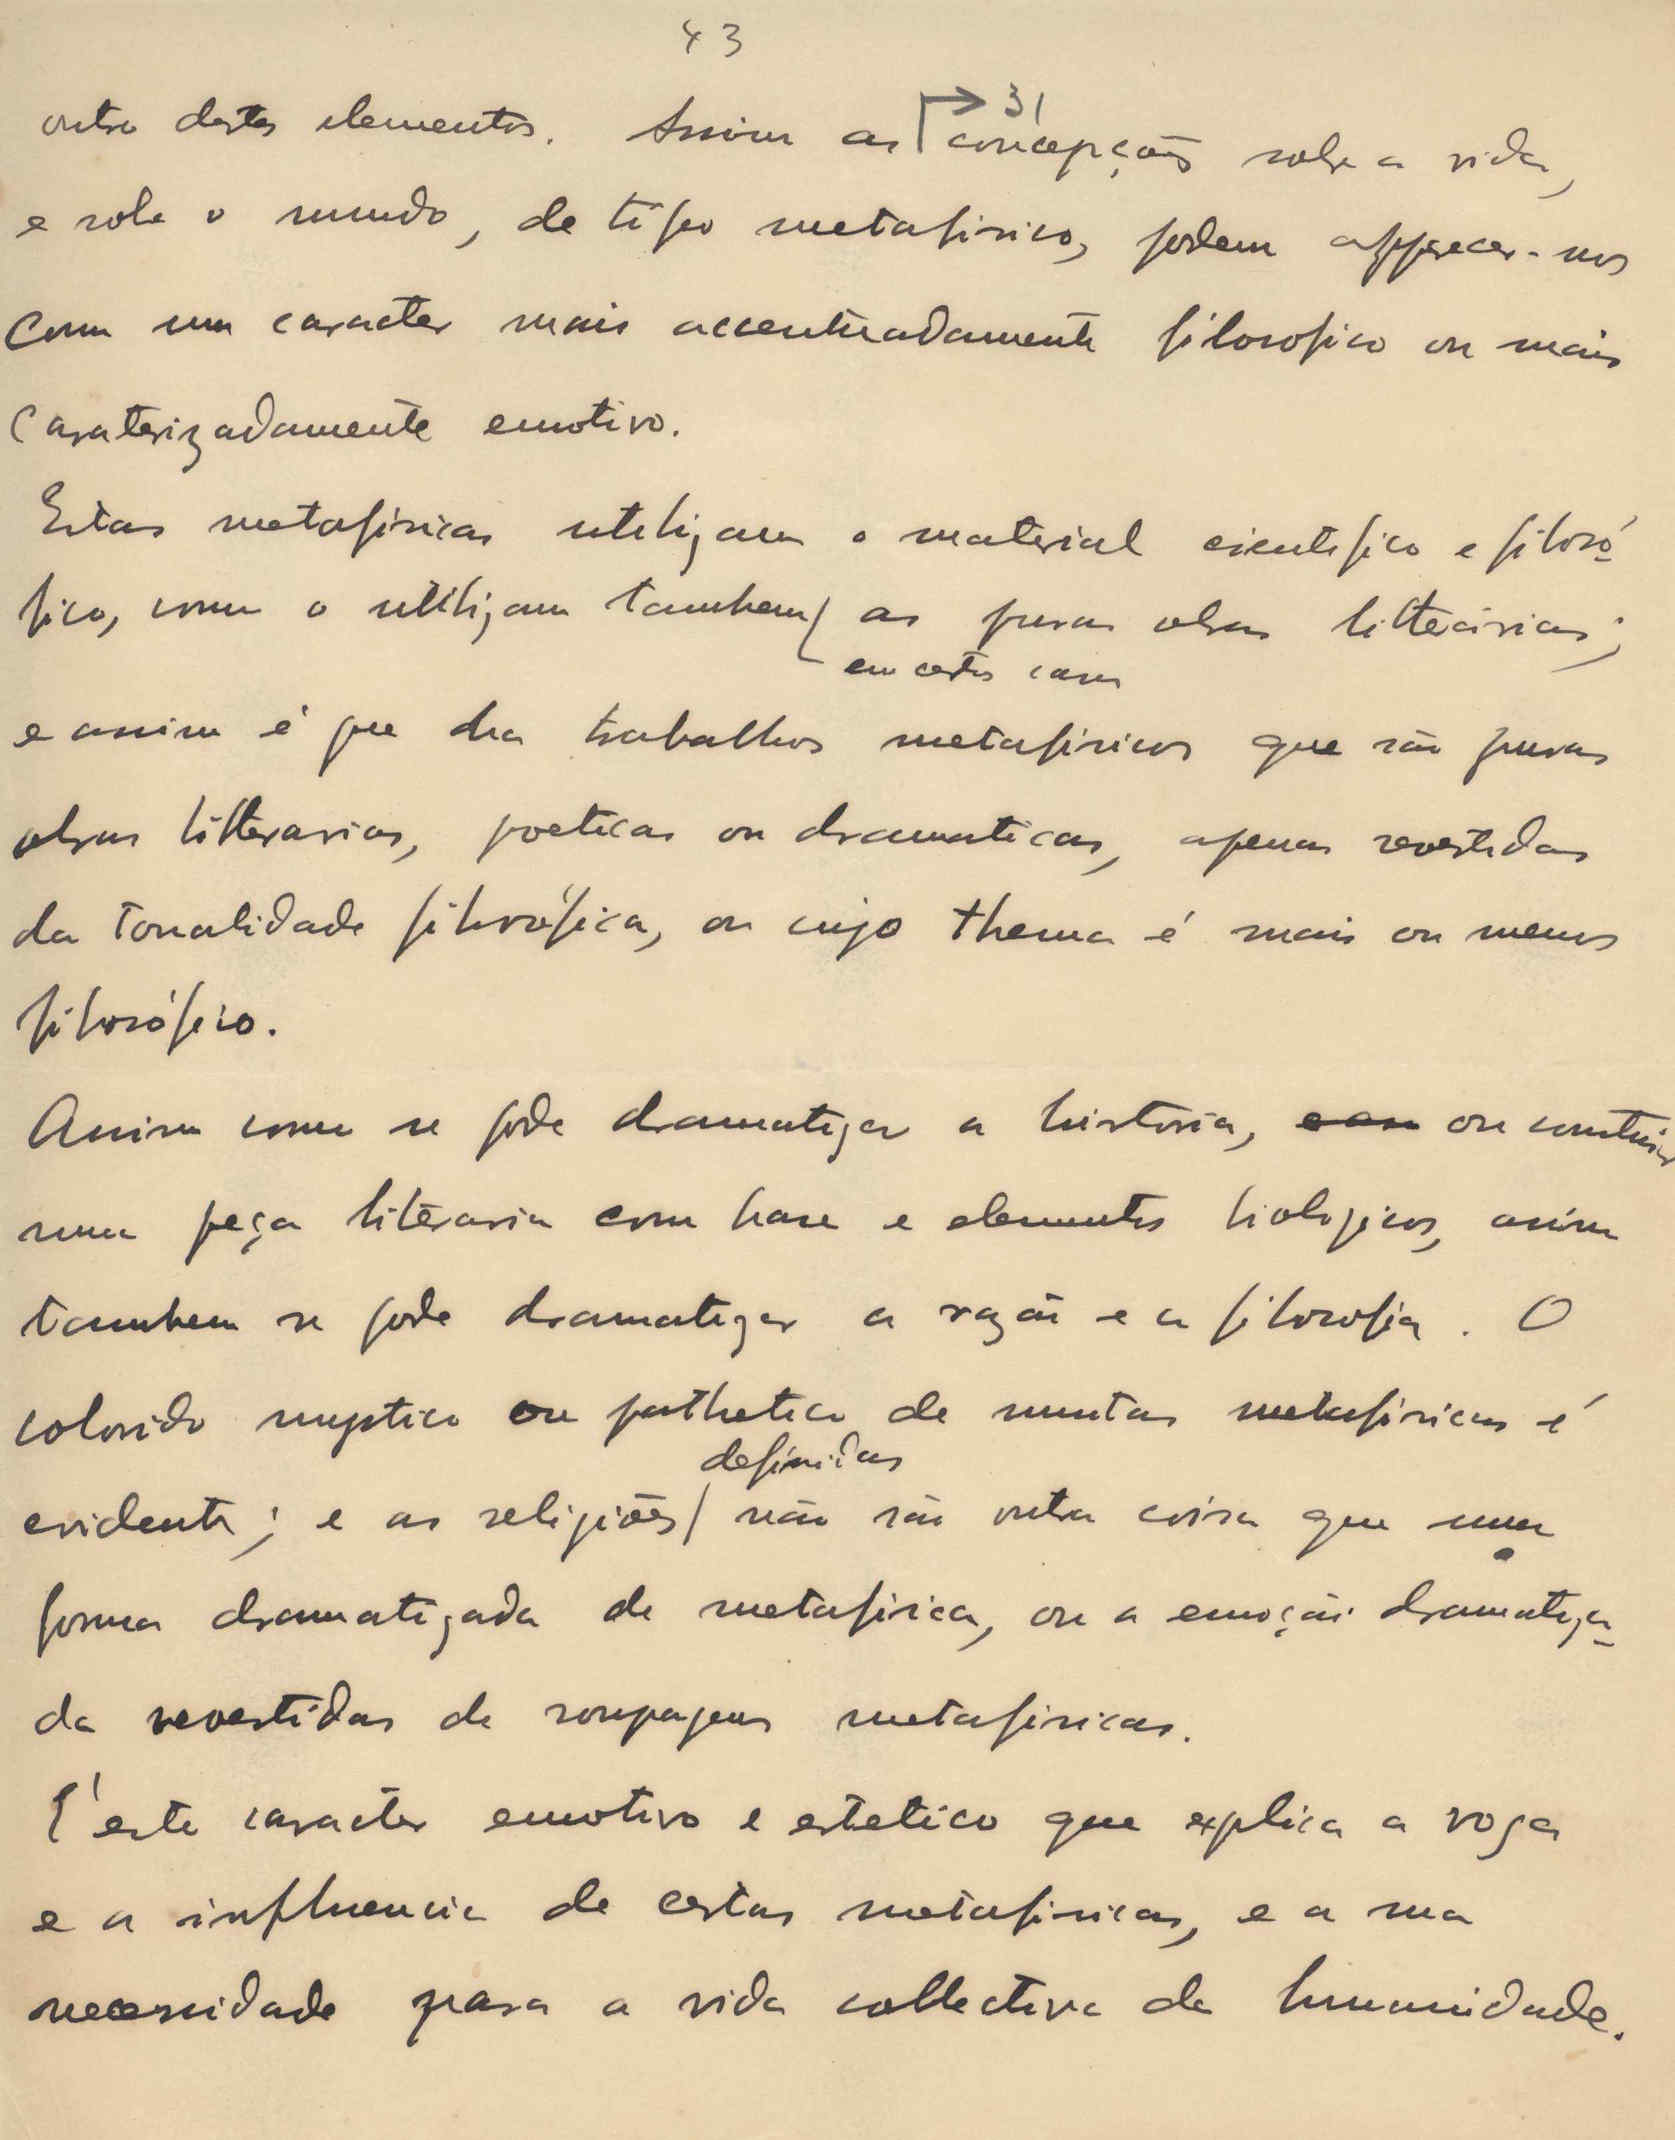 43
outro destes elementos. Assim as ⌈→ 31 concepções sobre a vida,
e sobre o mundo, de tipo metafisico, podem apparecer-nos
com um caracter mais accentuadamente filosofico ou mais
caraterizadamente emotivo.
Estas metafisicas utilizam o material cientifico e filosó-
fico, como o utilizam tambem as puras obras litterárias;
em certos casos
e assim é que ha trabalhos metafisicos que são puras
obras litterarias, poeticas ou dramaticas, apenas revestidas
da tonalidade filosófica, ou cujo thema é mais ou menos
filosófico.
Assim como se pode dramatizar a historia, ou construir
uma peça literaria com base e elementos biologicos, assim
tambem se pode dramatizar a razão e a filosofia. O
colorido mystico ou pathetico de muitas metafisicas é
definidas
evidente; e as religiões não são outra coisa que uma
forma dramatizada de metafisica, ou a emoção dramatiza-
da revestidas de roupagens metafisicas.
É este caracter emotivo e estetico que explica a voga
e a influencia de certas metafisicas, e a sua
necessidade para a vida collectiva da humanidade.